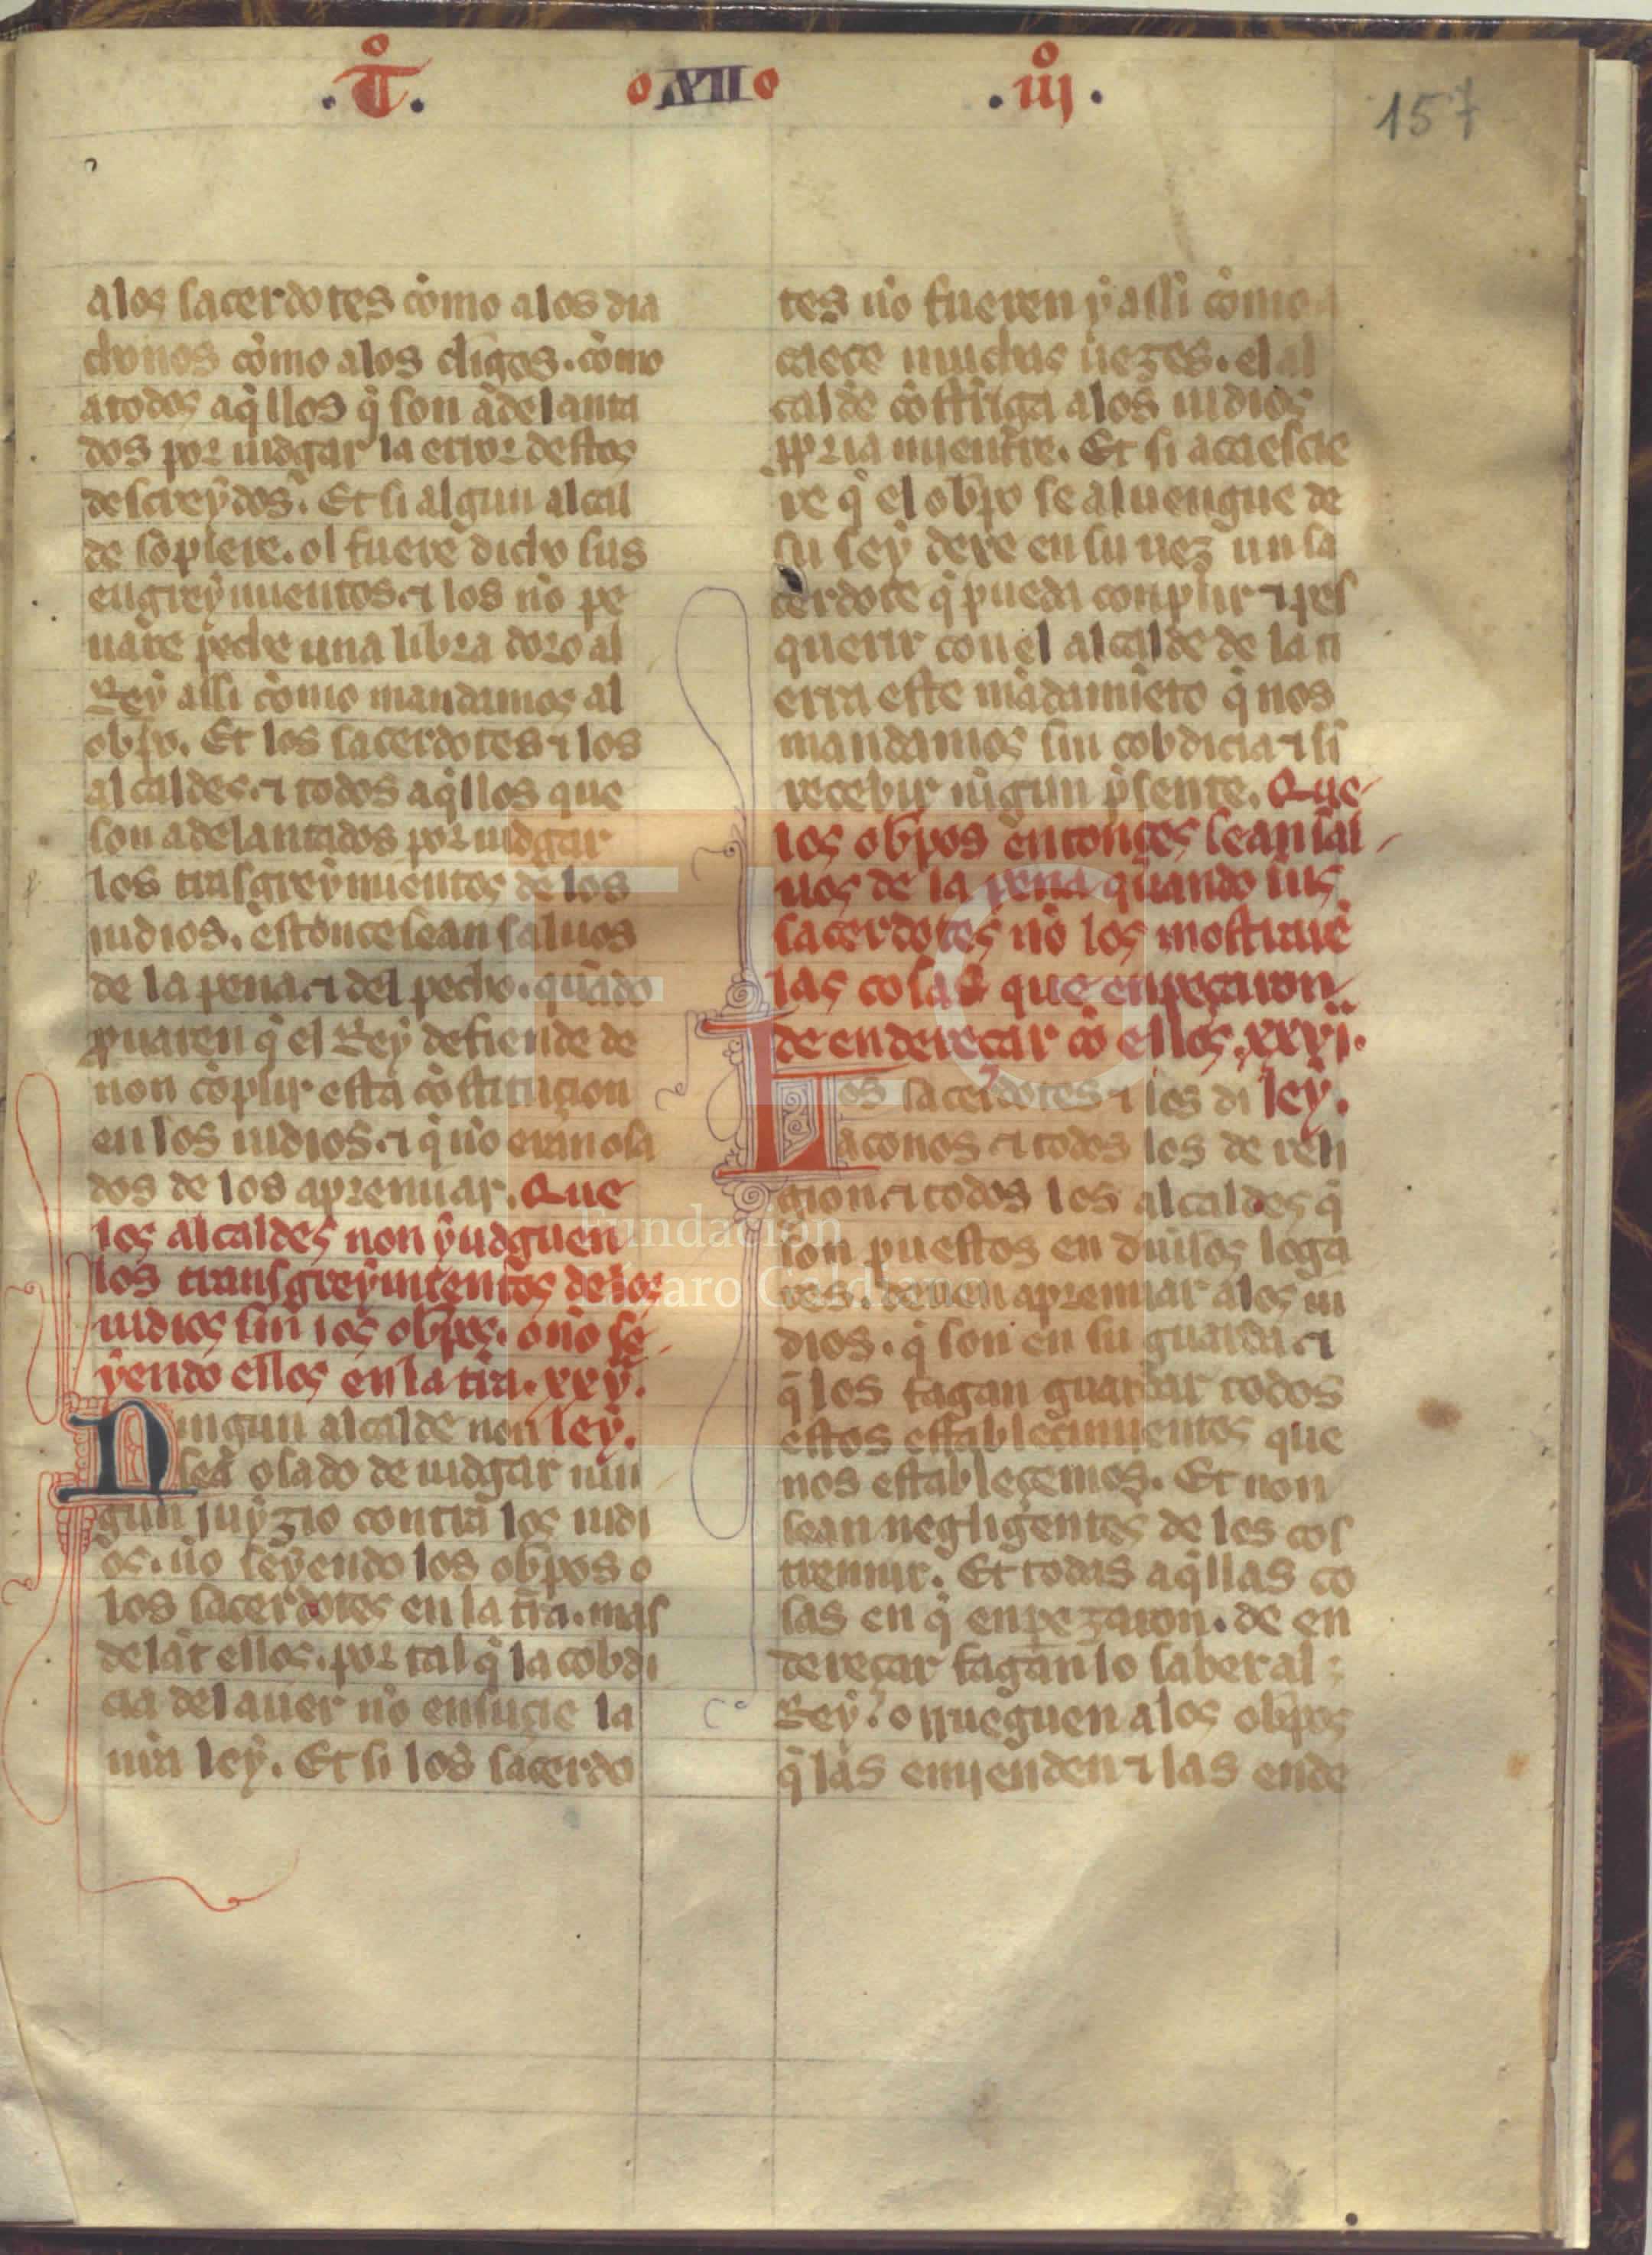 .T̊. oXIIo .iij̊.
157
alos sacerdotes com̊o alos dia
chonos com̊o alos clr̃igos. com̊o
atodos aq̃llos q̃ son adelanta
dos por iudgar la error destos
descreydos. Et si algun alcal
de sopiere. ol fuere dicho sus
engreymientos. ⁊ los no pe
nare peche una libra doro al
Rey assi com̊o mandamos al
ob̃po. Et los sacerdotes ⁊ los
alcaldes. ⁊ todos aq̃llos que
son adelantados por iudgar
los trasgreymientos de los
iudios. estonce sean saluos
de la pena. ⁊ del pecho. quãdo
ꝓuaren q̃ el Rey defiende de
non cõplir esta cõstitucion
en los iudios. ⁊ q̃ no eran osa
dos de los apremiar. Que
los alcaldes non yudguen
los transgreymientos delos
iudios sin los ob̃pos. o nõ se
yendo ellos en la tr̃ra. xxv.
Ningun alcalde non ley.
sea osado de iudgar nin
gun juyzio contra los iudi
os. nõ seyendo los ob̃pos o
los sacerdotes en la tr̃a. mas
delãt ellos. por tal q̃ la cobdi
cia del auer nõ ensuzie la
nr̃a ley. Et si los sacerdo
tes nõ fueren y assi com̊o a
caece muchas uezes. el al
calde cõstriga alos iudios
ꝓpria miente. Et si acaescie
re q̃ el ob̃po se aluengue de
su sey dexe en su uez un sa
cerdote q̃ pueda conplir ⁊ pes
querir con el alcalde de la ti
erra este mãdamiẽto q̃ nos
mandamos sin cobdicia ⁊ si
recebir nĩgun p̃sente. Que
los ob̃pos entonçes sean sal
uos de la pena quando sus
sacerdotes nõ los mostrarẽ
las cosas que enpeçaron
de endereçar cõ ellos. xxvi.
Los sacerdotes ⁊ los di ley.
aconos ⁊ todos los de reli
gion. ⁊ todos los alcaldes q̃
son puestos en diuisos loga
res. deuen apremiar alos iu
dios. q̃ son en su guarda. ⁊
q̃ los fagan guardar todos
estos establecimientos que
nos establecemos. Et non
sean negligentes de les cos
trennir. Et todas aq̃llas co
sas en q̃ enpezaron. de en
dereçar fagan lo saber al
Rey. o rrueguen alos ob̃pos
q̃ las emienden ⁊ las ende
FLG
Fundación
Lázaro Galdiano